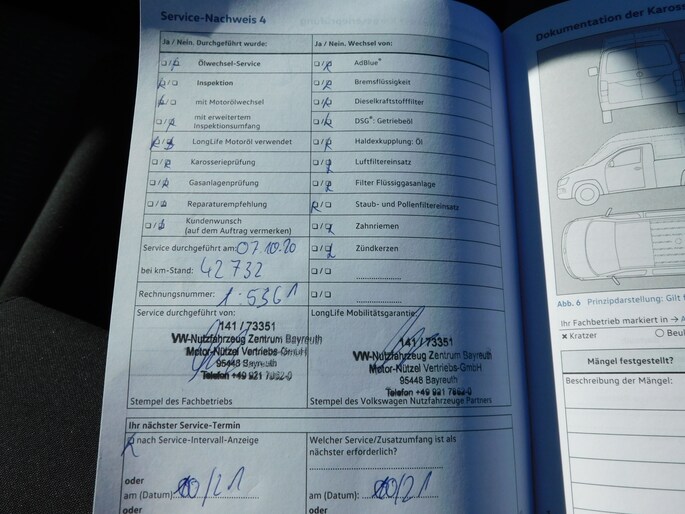 Service-Nachweis 4
Ja / Nein, Durchgeführt wurde:
Ölwechsel-Service
Inspektion
mit Motorölwechsel
mit erweitertem
Inspektionsumfang
LongLife Motoröl verwendet
Karosserieprüfung
Gasanlagenprüfung
Reparaturempfehlung
Kundenwunsch
(auf dem Auftrag vermerken)
Service durchgeführt am: 07.10.20
bei km-Stand: 42732
Rechnungsnummer: 1.5361
Service durchgeführt von:
141 / 73351
VW-Nutzfahrzeug Zentrum Bayreuth
Motor-Nützel Vertriebs-GmbH
95448 Bayreuth
Telefon +49 921 7862-0
Stempel des Fachbetriebs
Ja / Nein, Wechsel von:
AdBlue®
Bremsflüssigkeit
Dieselkraftstofffilter
DSG®: Getriebeöl
Haldexkupplung: Öl
Luftfiltereinsatz
Filter Flüssiggasanlage
Staub- und Pollenfiltereinsatz
Zahnriemen
Zündkerzen
LongLife Mobilitätsgarantie:
141 / 73351
VW-Nutzfahrzeug Zentrum Bayreuth
Motor-Nützel Vertriebs-GmbH
95448 Bayreuth
Telefon +49 921 7862-0
Stempel des Volkswagen Nutzfahrzeuge Partners
Ihr nächster Service-Termin
nach Service-Intervall-Anzeige
oder
am (Datum): 10/21
oder
Welcher Service/Zusatzumfang ist als
nächster erforderlich?
oder
am (Datum): 10/21
oder
Dokumentation der Kaross
Abb. 6 Prinzipdarstellung: Gilt f
Ihr Fachbetrieb markiert in → A
x Kratzer O Beul
Mängel festgestellt?
Beschreibung der Mängel: